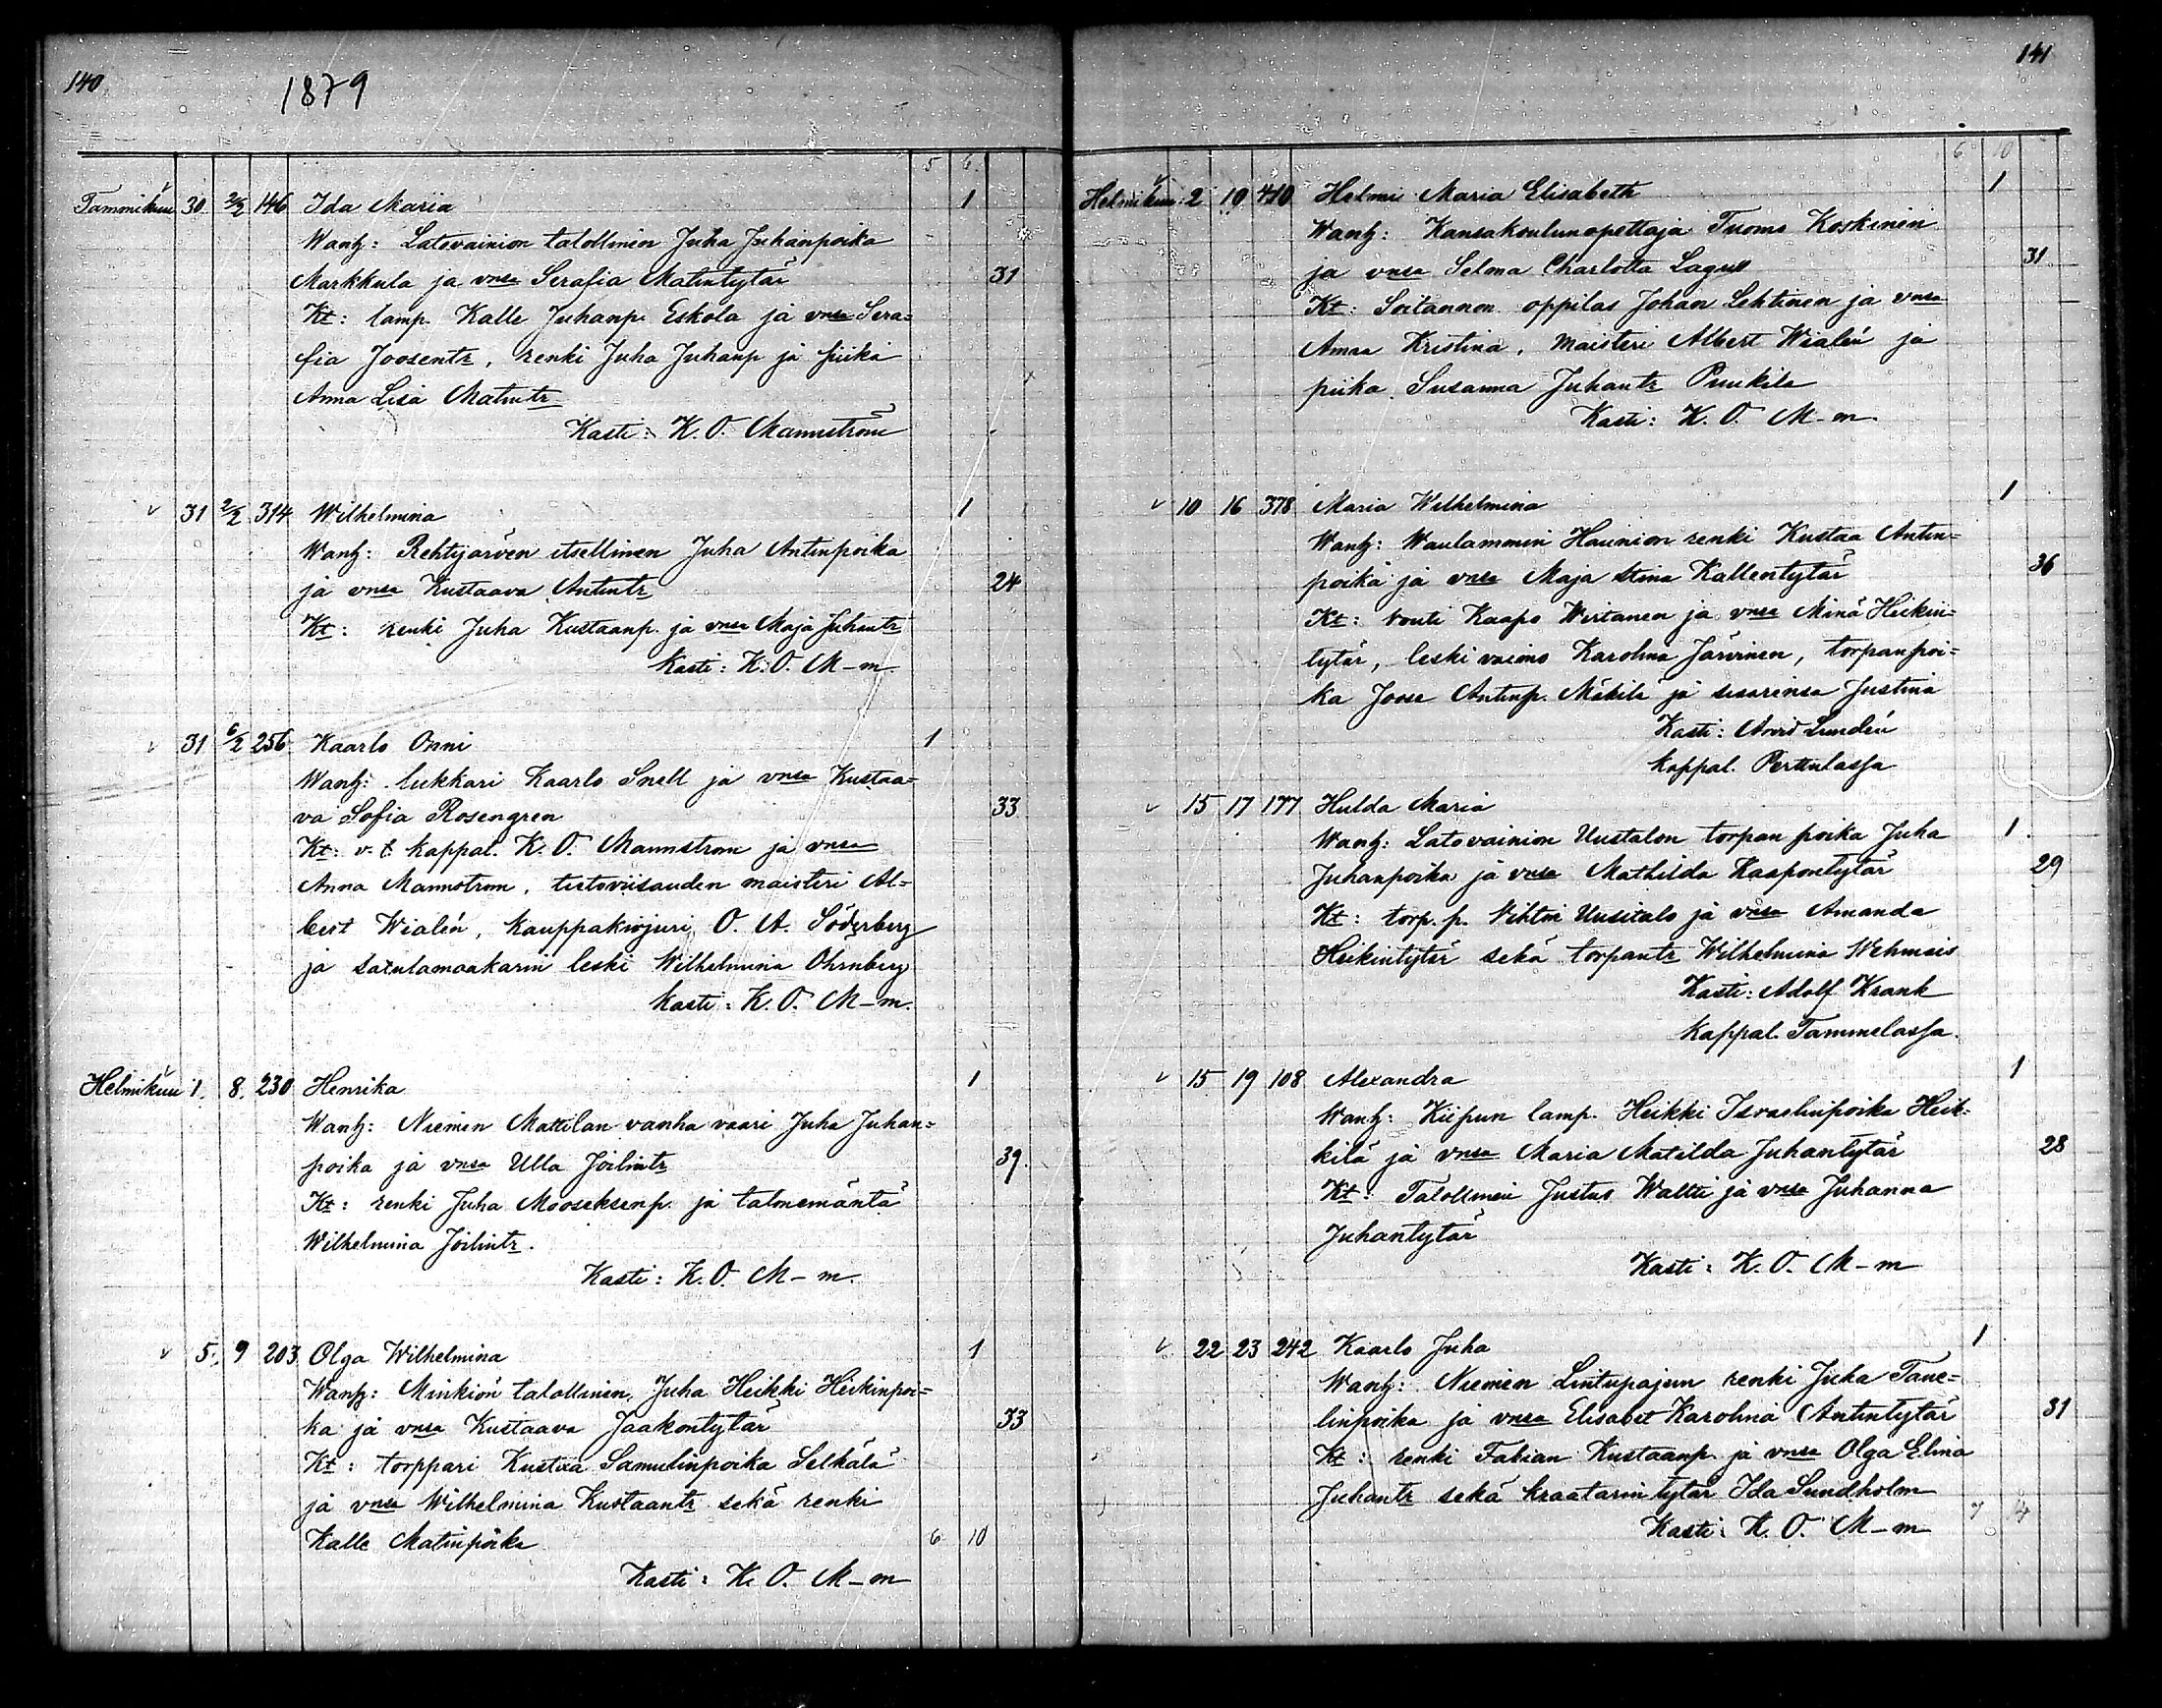 140
1879
5 6
Tammikuu 30 2/2 146 Ida Maria 1
Wanh: Latovainion talollinen Juha Juhanpoika
Markkula ja vnsa Serafia Matintytär 31
Kt: lamp. Kalle Juhanp. Eskola ja vnsa Sera=
fia Joosentr, renki Juha Juhanp ja piika
Anna Lisa Matintr
Kasti: K. O. Mannström
31 2/2 314 Wilhelmina 1
Wanh: Rehtijärven itsellinen Juha Antinpoika
ja vnsa Kustaava Antintr 24
Kt: renki Juha Kustaanp. ja vnsa Maja Juhantr
Kasti: K. O. M-m.
31 6/2 256 Kaarlo Onni 1
Wanh: lukkari Kaarlo Snell ja vnsa Kustaa=
va Sofia Rosengren 33
Kt: v. t. kappal. K. O. Mannstrom ja vnsa
Anna Mannstrom, tietoviisauden maisteri Al=
bert Wialén, kauppakirjuri O. A. Söderberg
ja satulamaakarin leski Wilhelmina Öhrnberg
Kasti: K. O. M-m.
Helmikuu 1. 8. 230 Henrika 1
Wanh: Niemen Mattilan vanha vaari Juha Juhan=
poika ja vnsa Ulla Joilintr 39.
Kt: renki Juha Mooseksenp. ja talonemäntä
Wilhelmina Joilintr.
Kasti: K. O. M-m.
5. 9 203 Olga Wilhelmina 1
Wanh: Minkiön talollinen, Juha Heikki Heikinpoi=
ka ja vnsa Kustaava Jaakontytär 33
Kt: torppari Kustaa Samulinpoika Selkälä
ja vnsa Wilhelmina Kustaantr sekä renki
Kalle Matinpoika 6 10
Kasti: K. O. M-m
141
6 10
Helmikuu 2 10 410 Helmi Maria Elisabeth 1
Wanh: Kansakoulunopettaja Tuomo Koskinen
ja vnsa Selma Charlotta Lagus 31
Kt: Soitannon oppilas Johan Lehtinen ja vnsa
Amaa Kristina, maisteri Albert Wialén ja
piika Susanna Juhantr Puukila
Kasti: K. O. M-m.
10 16 378 Maria Wilhelmina 1
Wanh: Waulammin Haunion renki Kustaa Antin=
poika ja vnsa Maja Stina Kallentytär 36
Kt: vouti Kaapo Wirtanen ja vnsa Minä Heikin=
tytär, leski vaimo Karolina Järvinen, torpanpoi=
ka Joose Antinp. Mäkilä ja sisarensa Justina
Kasti: Arvid Lundén
kappal. Perttulassa
15 17 177 Hulda Maria
Wanh: Latovainion Uustalon torpan poika Juha 1
Juhanpoika ja vnsa Mathilda Kaapontytär 29
Kt: torp. p. Vihtori Uusitalo ja vnsa Amanda
Heikintytär sekä torpantr Wilhelmina Wehmais
Kasti: Adolf Krank
Kappal. Tammelassa.
15 19 108 Alexandra 1
Wanh: Kiipun lamp. Heikki Israelinpoika Heik=
kilä ja vnsa Maria Matilda Juhantytär 28
Kt: Talollinen Justus Waltti ja vnsa Juhanna
Juhantytär
Kasti: K. O. M-m
22 23 242 Kaarlo Juha 1
Wanh: Niemen Lintupajun renki Juha Tane=
linpoika ja vnsa Elisabet Karolina Antintytär 31
Kt: renki Fabian Kustaanp. ja vnsa Olga Elina
Juhantr sekä kraatarin tytär Ida Sundholm
Kasti: K. O. M-m 7 14